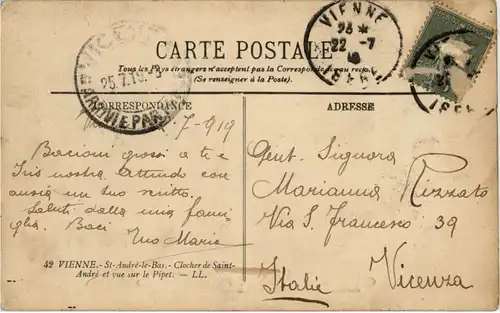 CARTE POSTALE
Tous les Pays étrangers n'acceptent pas la Correspondance au recto
(Se renseigner à la Poste).
VIENNE
22 -7
ISERE
25.7.19
ARRIVI E PAR
CORRESPONDANCE
ADRESSE
7-919
Bacioni grossi a te e
Iris nostra attendo con
ansia un tuo scritto.
Saluti dalla una fami-
glia. Baci
Tuo Mario
Gent. Signora
Marianna Rizzato
Via S. Francesco 39
Italie Vicenza
42 VIENNE. - St-André-le-Bas. - Clocher de Saint-
André et vue sur le Pipet. — LL.